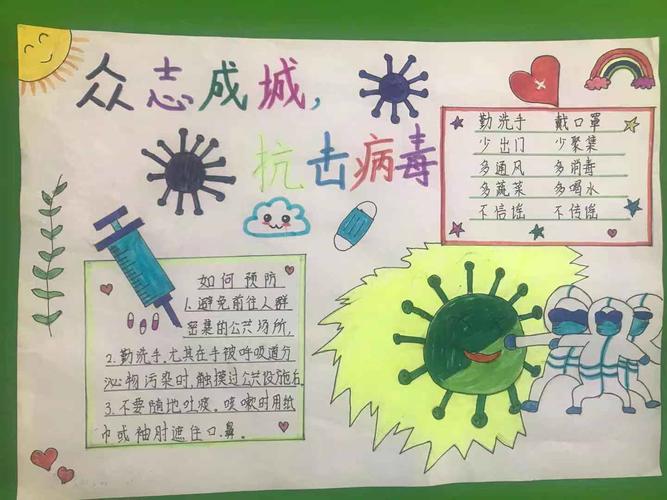 众志成城，
抗击病毒
勤洗手 戴口罩
少出门 少聚集
多通风 多消毒
多蔬菜 多喝水
不信谣 不传谣
如何预防
1.避免前往人群
密集的公共场所,
2.勤洗手.尤其在手被呼吸道分
泌物污染时,触摸过公共设施后.
3.不要随地吐痰。咳嗽时用纸
巾或袖肘遮住口.鼻。